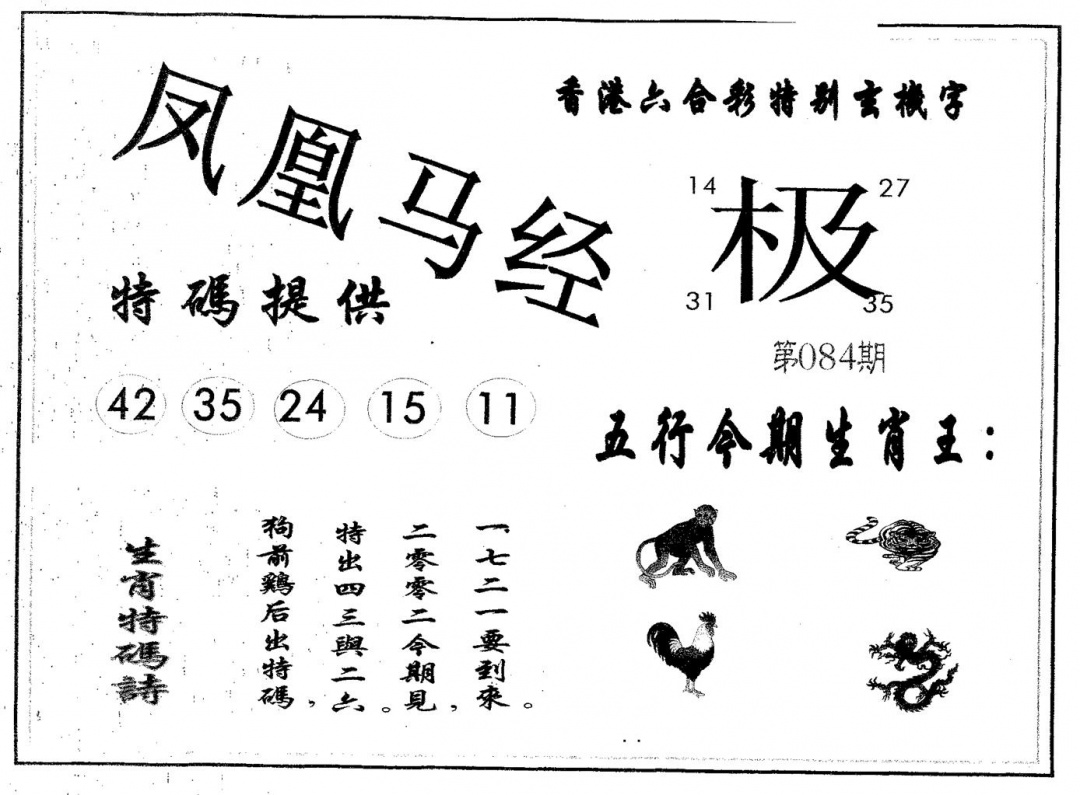 凤凰马经
香港六合彩特别玄機字
14 27
极
31 35
第084期
特碼提供
42 35 24 15 11
五行今期生肖王：
生肖特碼詩
狗前鷄后出特碼，
特出四三與二六。
二零零二今期見，
一七二一要到來。